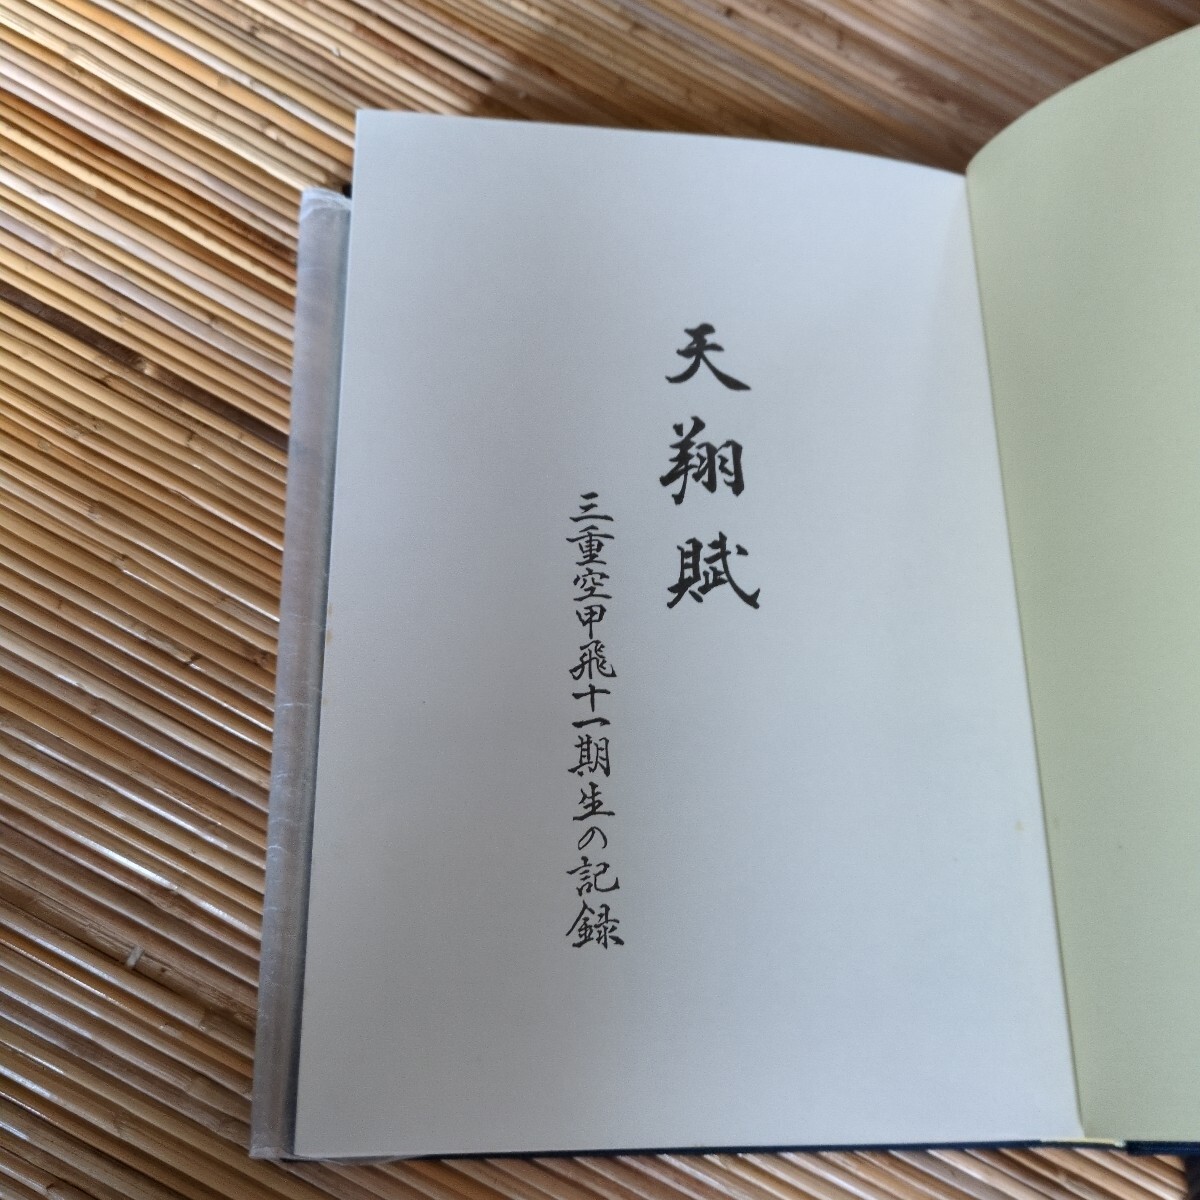 天翔賦
三重空甲飛十一期生の記録